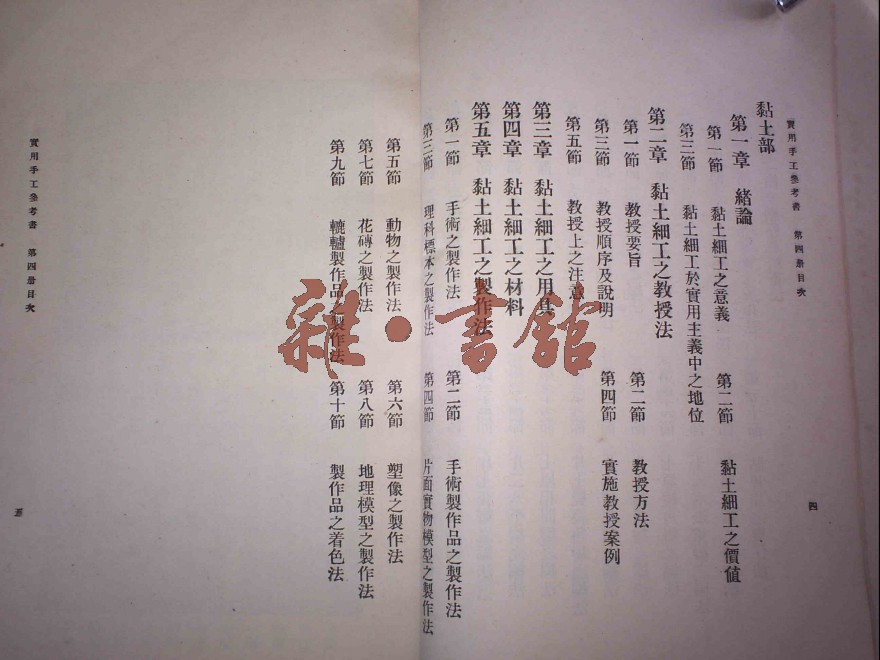 實用手工參考書 第四册目次
四
黏土部
第一章 緒論
第一節 黏土細工之意義 第二節 黏土細工之價値
第三節 黏土細工於實用主義中之地位
第二章 黏土細工之教授法
第一節 教授要旨 第二節 教授方法
第三節 教授順序及說明 第四節 實施教授案例
第五節 教授上之注意
第三章 黏土細工之用具
第四章 黏土細工之材料
第五章 黏土細工之製作法
第一節 手術之製作法 第二節 手術製作品之製作法
第三節 理科標本之製作法 第四節 片面實物模型之製作法
第五節 動物之製作法 第六節 塑像之製作法
第七節 花磚之製作法 第八節 地理模型之製作法
第九節 轆轤製作品之製作法 第十節 製作品之着色法
實用手工參考書 第四册目次
五
雜·書館